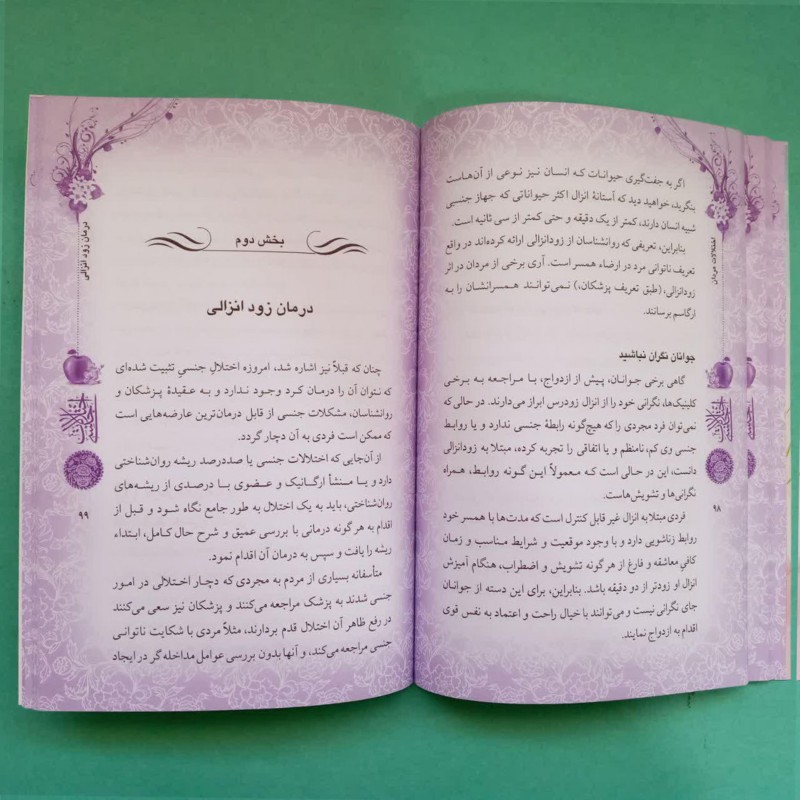 اختلالات مردان
اگر به جفت‌گیری حیوانات که انسان نیز نوعی از آن‌هاست
بنگرید، خواهید دید که آستانهٔ انزال اکثر حیواناتی که جهاز جنسی
شبیه انسان دارند، کمتر از یک دقیقه و حتی کمتر از سی ثانیه است.
بنابراین، تعریفی که روانشناسان از زودانزالی ارائه کرده‌اند در واقع
تعریف ناتوانی مرد در ارضاء همسر است. آری برخی از مردان در اثر
زودانزالی، (طبق تعریف پزشکان،) نمی‌توانند همسرانشان را به
ارگاسم برسانند.
جوانان نگران نباشید
گاهی برخی جوانان، پیش از ازدواج، با مراجعه به برخی
کلینیک‌ها، نگرانی خود را از انزال زودرس ابراز می‌دارند. در حالی که
نمی‌توان فرد مجردی را که هیچ‌گونه رابطهٔ جنسی ندارد و یا روابط
جنسی وی کم، نامنظم و یا اتفاقی را تجربه کرده، مبتلا به زودانزالی
دانست، این در حالی است که معمولاً این گونه روابط، همراه
نگرانی‌ها و تشویش‌هاست.
فردی مبتلا به انزال غیر قابل کنترل است که مدت‌ها با همسر خود
روابط زناشویی دارد و با وجود موقعیت و شرایط مناسب و زمان
کافیِ معاشقه و فارغ از هر گونه تشویش و اضطراب، هنگام آمیزش
انزال او زودتر از دو دقیقه باشد. بنابراین، برای این دسته از جوانان
جای نگرانی نیست و می‌توانند با خیال راحت و اعتماد به نفس قوی
اقدام به ازدواج نمایند.
۹۸
درمان زود انزالی
بخش دوم
درمان زود انزالی
چنان که قبلاً نیز اشاره شد، امروزه اختلال جنسیِ تثبیت شده‌ای
که نتوان آن را درمان کرد وجود ندارد و به عقیدهٔ پزشکان و
روانشناسان، مشکلات جنسی از قابل درمان‌ترین عارضه‌هایی است
که ممکن است فردی به آن دچار گردد.
از آن‌جایی که اختلالات جنسی یا صددرصد ریشه روان‌شناختی
دارد و یا منشأ ارگانیک و عضوی با درصدی از ریشه‌های
روان‌شناختی، باید به یک اختلال به طور جامع نگاه شود و قبل از
اقدام به هر گونه درمانی با بررسی عمیق و شرح حال کامل، ابتداء
ریشه را یافت و سپس به درمان آن اقدام نمود.
متأسفانه بسیاری از مردم به مجردی که دچار اختلالی در امور
جنسی شدند به پزشک مراجعه می‌کنند و پزشکان نیز سعی می‌کنند
در رفع ظاهر آن اختلال قدم بردارند، مثلاً مردی با شکایت ناتوانی
جنسی مراجعه می‌کند، و آنها بدون بررسی عوامل مداخله‌گر در ایجاد
۹۹